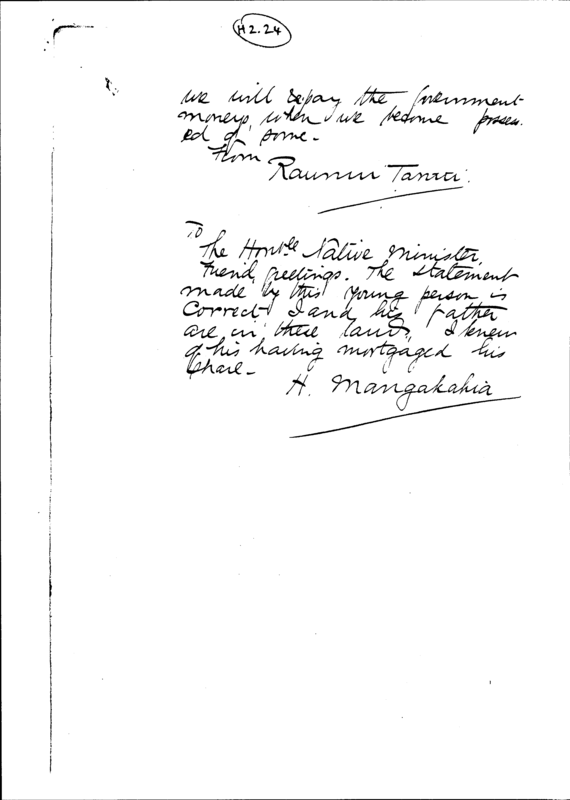 H2.24
we will repay the Government
moneys, when we become possess-
ed of some -
From
To
The Honble Native Minister,
Friend, Greetings. The statement
made by this young person is
Correct I and his Father
are in these lands, I knew
of his having mortgaged his
Share -
H. Mangakahia